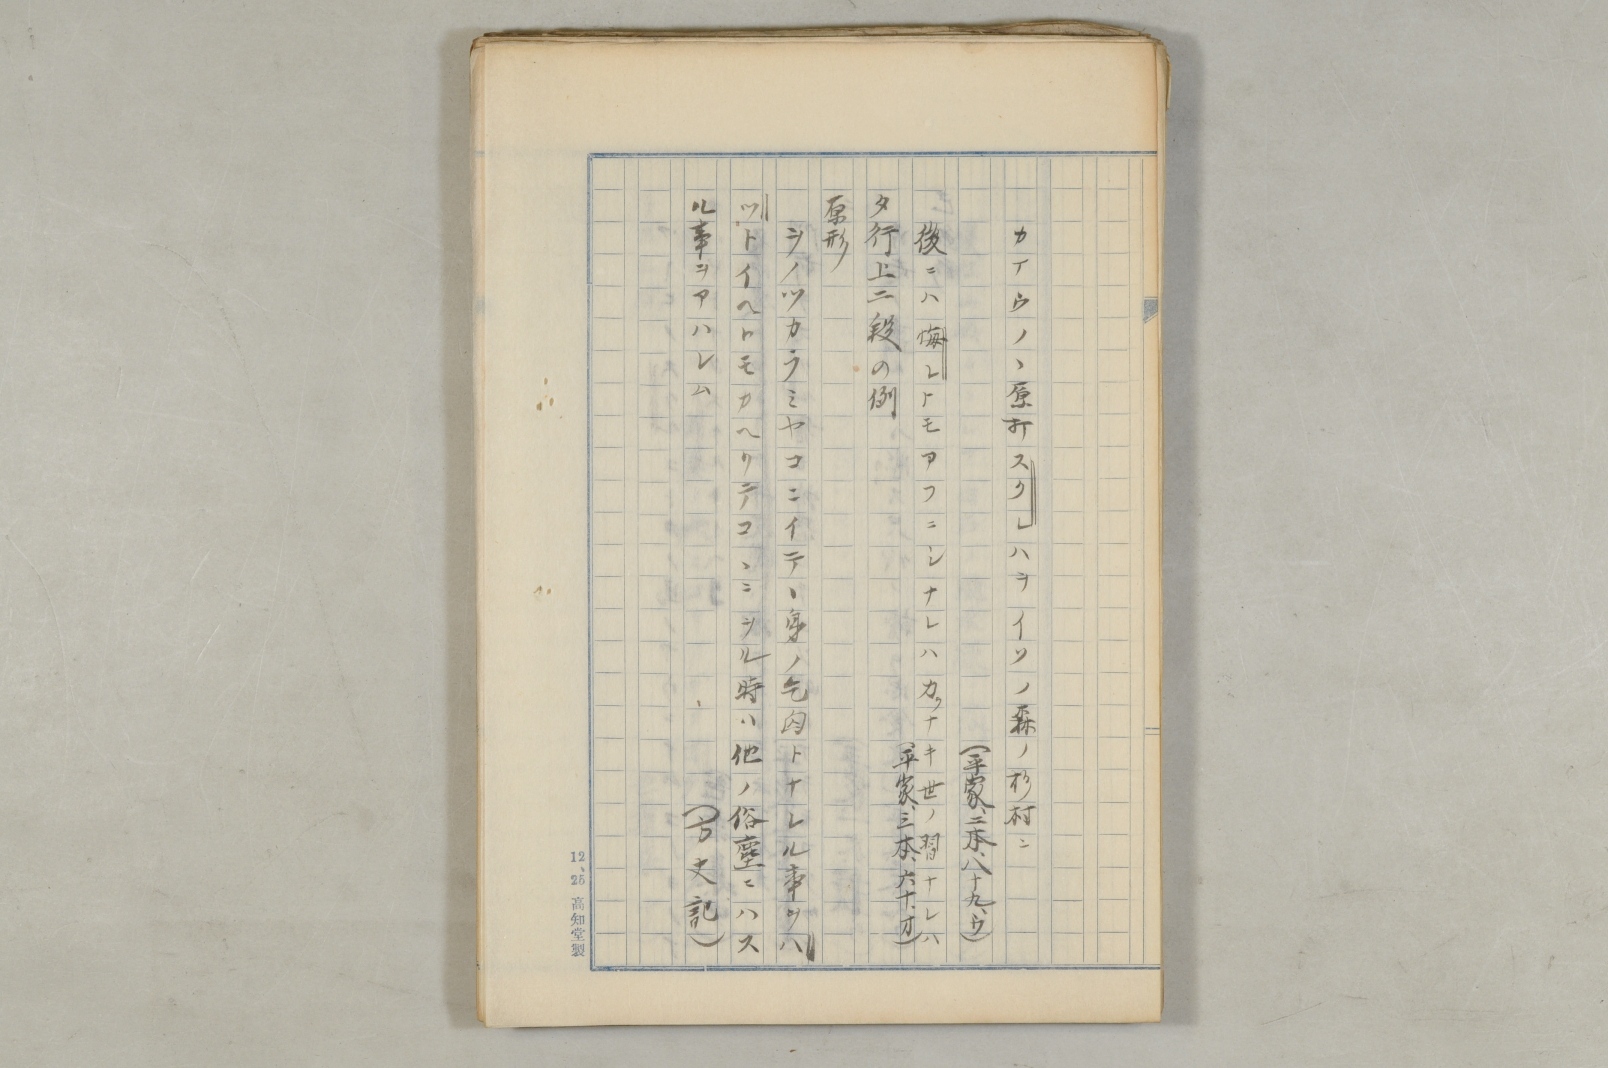 カイウノヽ原打スクレハヲイソノ森ノ杉村ニ
(平家、二本、八十九、ウ)
後ニハ悔レトモアフニシナレハカラナキ世ノ習ナレハ
(平家、三本、六十、オ)
タ行上二段の例
原形
ヲノツカラミヤコニイテヽ身ノ乞匃トナレル事ヲハ
ツトイヘトモカヘリテコヽニヲル時ハ他ノ俗塵ニハス
ル事ヲアハレム
(方丈記)
12、25 高知堂製